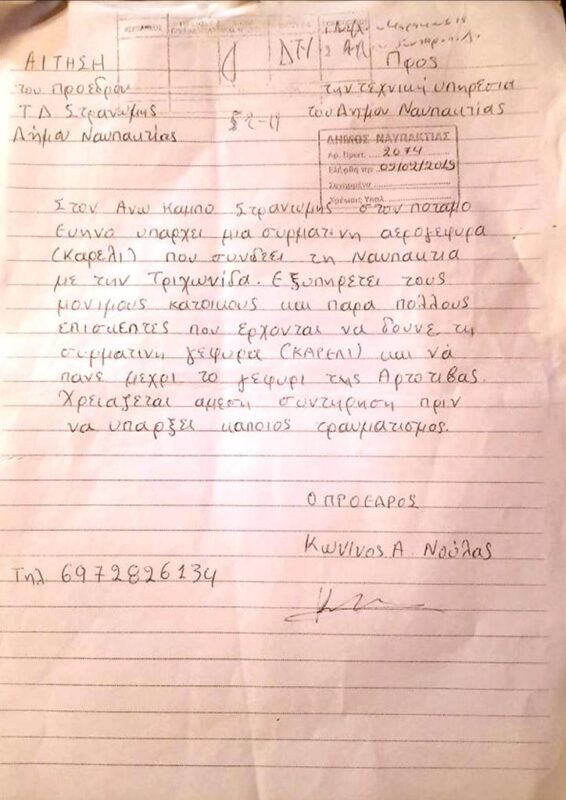 ΑΙΤΗΣΗ
του Προεδρου
Τ Δ Στρανωμης
Δημου Ναυπακτιας
Προς
την τεχνικη υπηρεσια
του Δημου Ναυπακτιας
ΔΗΜΟΣ ΝΑΥΠΑΚΤΙΑΣ
Αρ. Πρωτ. 2074
Ελήφθη την
Συνημμένα
Χρέωσις Υπαλ.
Στον Ανω Καμπο Στρανωμης στον ποταμο
Ευηνο υπαρχει μια συρματινη αερογεφυρα
(Καρελι) που συνδεει τη Ναυπακτια
με την Τριχωνιδα. Εξυπηρετει τους
μονιμους κατοικους και παρα πολλους
επισκεπτες που ερχονται να δουνε τη
συρματινη γεφυρα (ΚΑΡΕΛΙ) και νά
πανε μεχρι το γεφυρι της Αρτοτιβας.
Χρειαζεται αμεση συντηρηση πριν
να υπαρξει καποιος τραυματισμος.
Ο ΠΡΟΕΔΡΟΣ
Κων/νος Α. Νούλας
Τηλ 6972826134